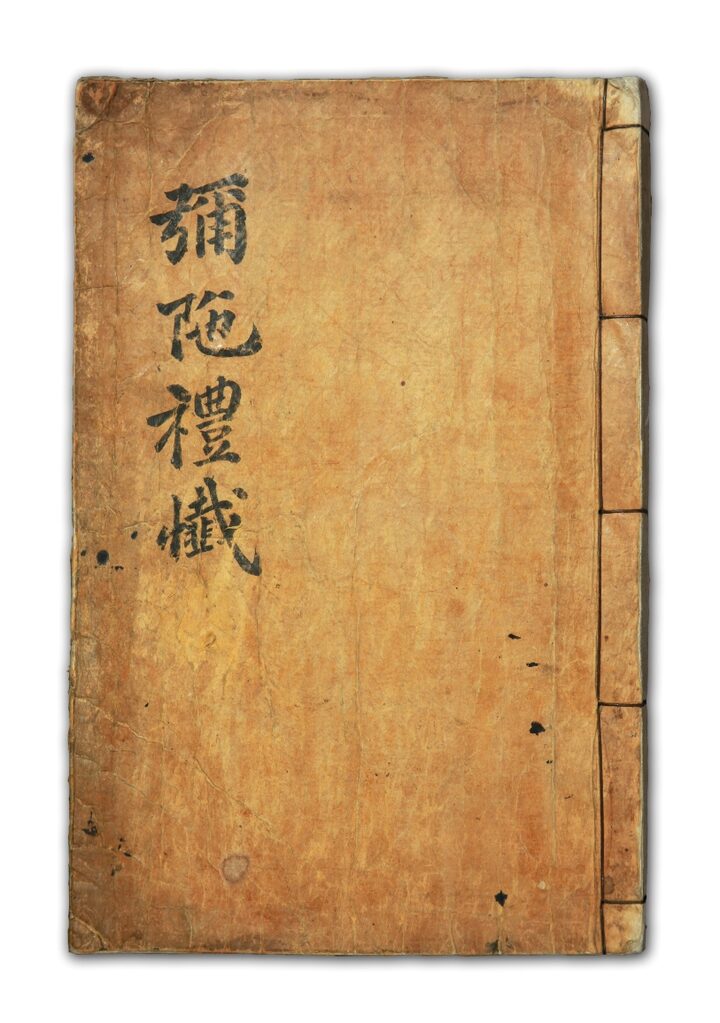 彌陁禮懺